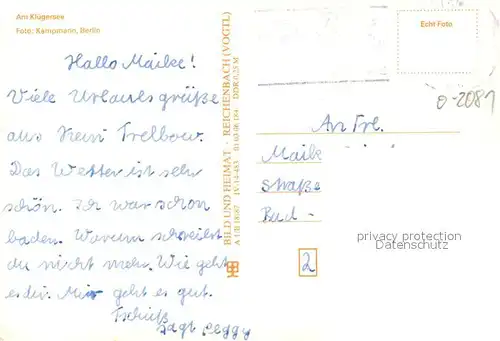 Am Klügersee
Foto: Kampmann, Berlin
Hallo Maike!
Viele Urlaubsgrüße
aus Klein Trebbow.
Das Wetter ist sehr
schön. Ich war schon
baden. Warum schreibst
du nicht mehr. Wie geht
es dir. Mir geht es gut.
Tschüß
sagt Peggy
BILD UND HEIMAT · REICHENBACH (VOGTL)
DDR 0,25 M
Echt Foto
0-2081
An Frl.
Maik
Straße
Bad -
2
privacy protection
Datenschutz